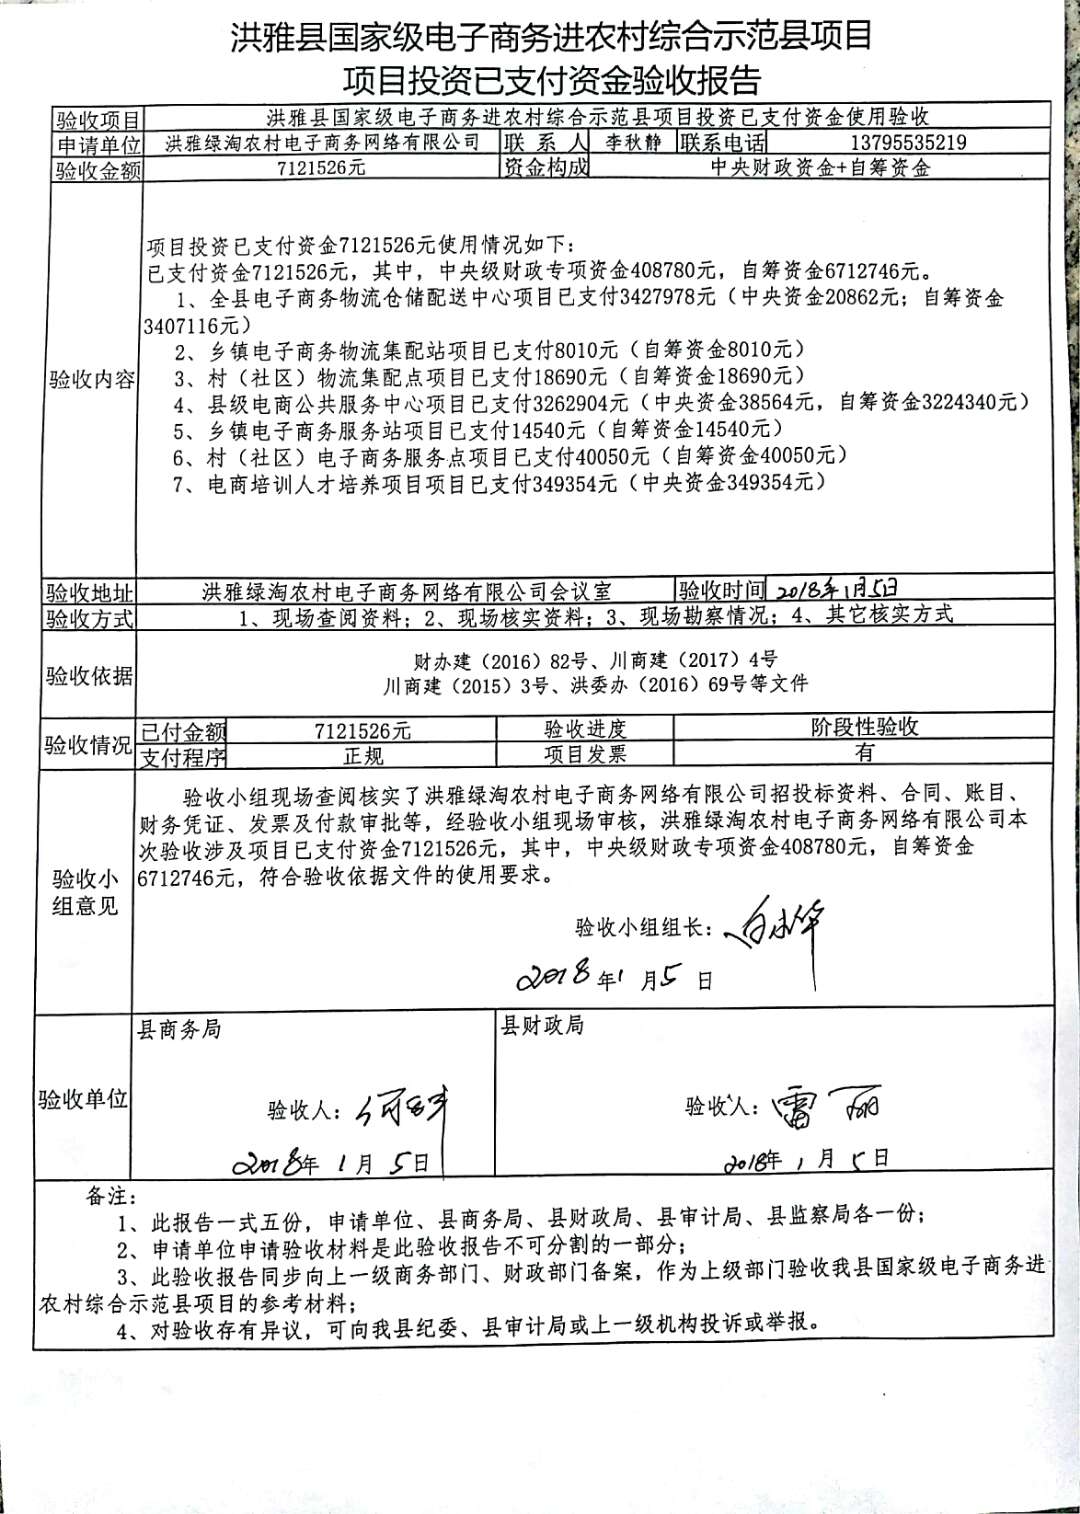 洪雅县国家级电子商务进农村综合示范县项目
项目投资已支付资金验收报告
验收项目 洪雅县国家级电子商务进农村综合示范县项目投资已支付资金使用验收
申请单位 洪雅绿淘农村电子商务网络有限公司 联系人 李秋静 联系电话 13795535219
验收金额 7121526元 资金构成 中央财政资金+自筹资金
验收内容
项目投资已支付资金7121526元使用情况如下：
已支付资金7121526元，其中，中央级财政专项资金408780元，自筹资金6712746元。
1、全县电子商务物流仓储配送中心项目已支付3427978元（中央资金20862元；自筹资金
3407116元）
2、乡镇电子商务物流集配站项目已支付8010元（自筹资金8010元）
3、村（社区）物流集配点项目已支付18690元（自筹资金18690元）
4、县级电商公共服务中心项目已支付3262904元（中央资金38564元，自筹资金3224340元）
5、乡镇电子商务服务站项目已支付14540元（自筹资金14540元）
6、村（社区）电子商务服务点项目已支付40050元（自筹资金40050元）
7、电商培训人才培养项目项目已支付349354元（中央资金349354元）
验收地址 洪雅绿淘农村电子商务网络有限公司会议室 验收时间 2018年1月5日
验收方式 1、现场查阅资料；2、现场核实资料；3、现场勘察情况；4、其它核实方式
验收依据
财办建（2016）82号、川商建（2017）4号
川商建（2015）3号、洪委办（2016）69号等文件
验收情况
已付金额 7121526元 验收进度 阶段性验收
支付程序 正规 项目发票 有
验收小
组意见
验收小组现场查阅核实了洪雅绿淘农村电子商务网络有限公司招投标资料、合同、账目、
财务凭证、发票及付款审批等，经验收小组现场审核，洪雅绿淘农村电子商务网络有限公司本
次验收涉及项目已支付资金7121526元，其中，中央级财政专项资金408780元，自筹资金
6712746元，符合验收依据文件的使用要求。
验收小组组长：
2018年1月5日
验收单位
县商务局 县财政局
验收人： 验收人：雷丽
2018年1月5日 2018年1月5日
备注：
1、此报告一式五份，申请单位、县商务局、县财政局、县审计局、县监察局各一份；
2、申请单位申请验收材料是此验收报告不可分割的一部分；
3、此验收报告同步向上一级商务部门、财政部门备案，作为上级部门验收我县国家级电子商务进
农村综合示范县项目的参考材料；
4、对验收存有异议，可向我县纪委、县审计局或上一级机构投诉或举报。